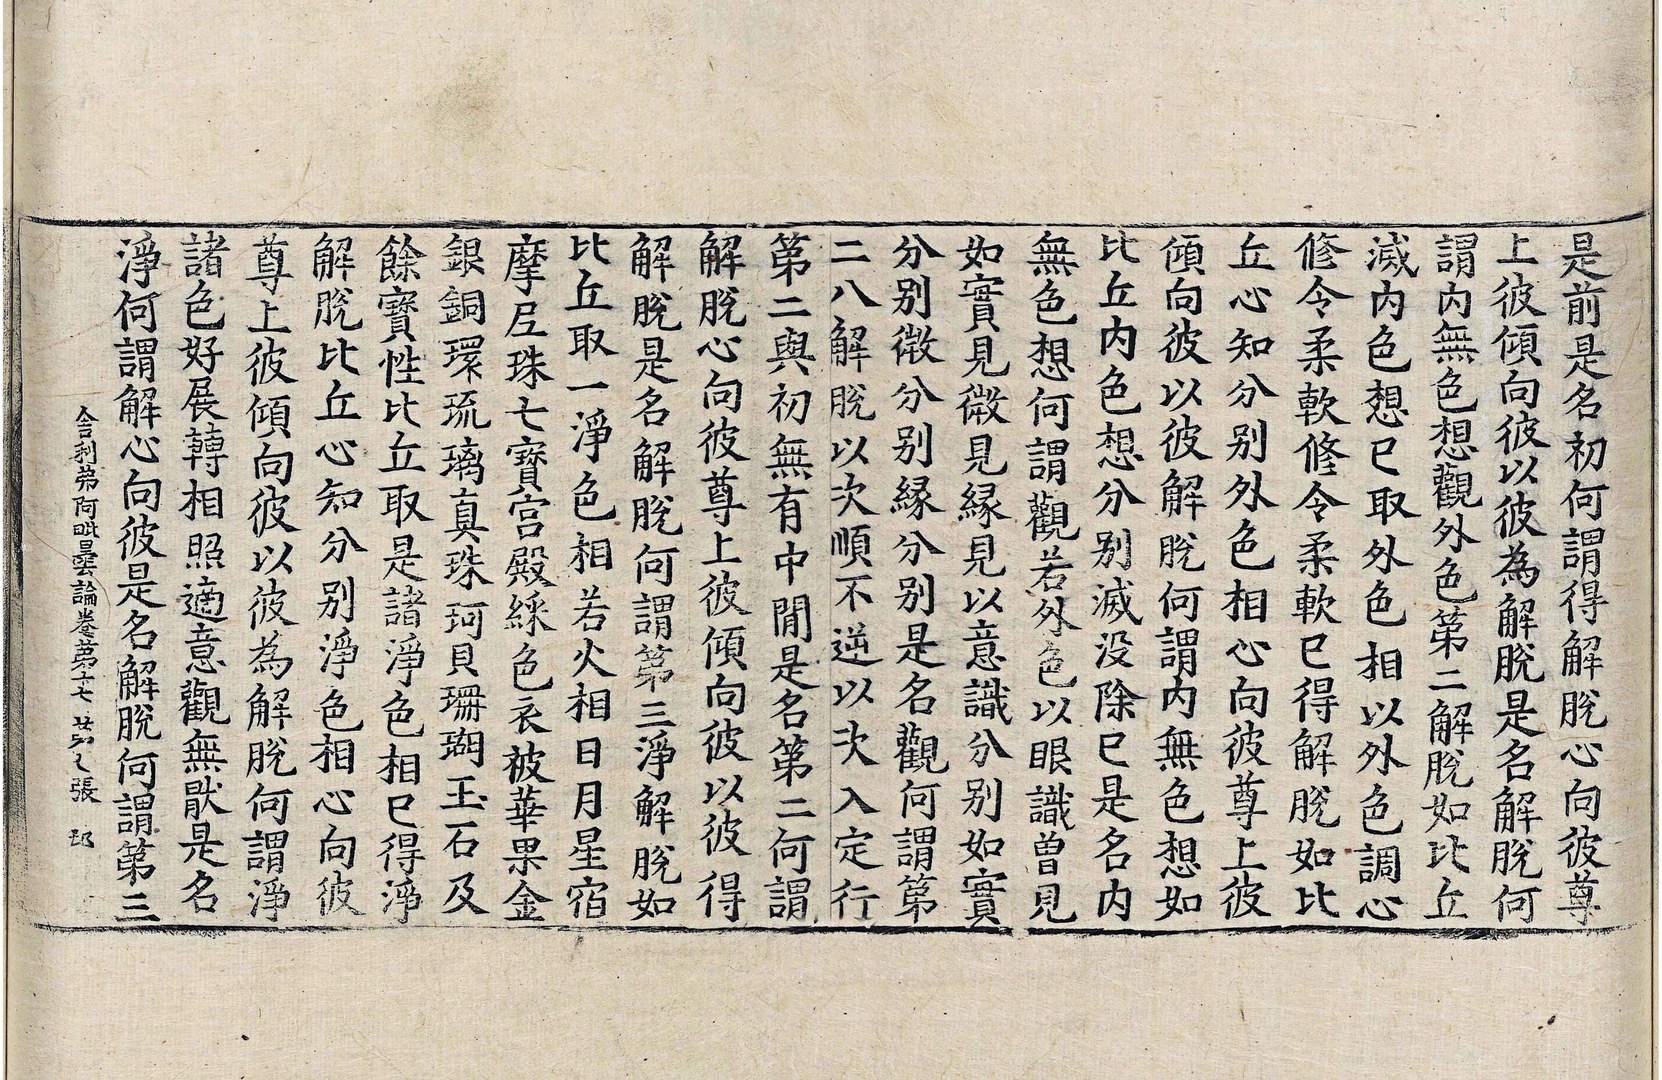 是前是名初何謂得解脫心向彼尊
上彼傾向彼以彼為解脫是名解脫何
謂內無色想觀外色第二解脫如比丘
滅內色想已取外色相以外色調心
修令柔軟修令柔軟已得解脫如比
丘心知分別外色相心向彼尊上彼
傾向彼以彼解脫何謂內無色想如
比丘內色想分別滅沒除已是名內
無色想何謂觀若外色以眼識曾見
如實見微見緣見以意識分別如實
分別微分別緣分別是名觀何謂第
二八解脫以次順不逆以次入定行
第二與初無有中間是名第二何謂
解脫心向彼尊上彼傾向彼以彼得
解脫是名解脫何謂第三淨解脫如
比丘取一淨色相若火相日月星宿
摩尼珠七寶宮殿綵色衣被華果金
銀銅環琉璃真珠珂貝珊瑚玉石及
餘寶性比丘取是諸淨色相已得淨
解脫比丘心知分別淨色相心向彼
尊上彼傾向彼以彼為解脫何謂淨
諸色好展轉相照適意觀無猒是名
淨何謂解心向彼是名解脫何謂第三
舍利弗阿毗曇論卷第十七 第 張